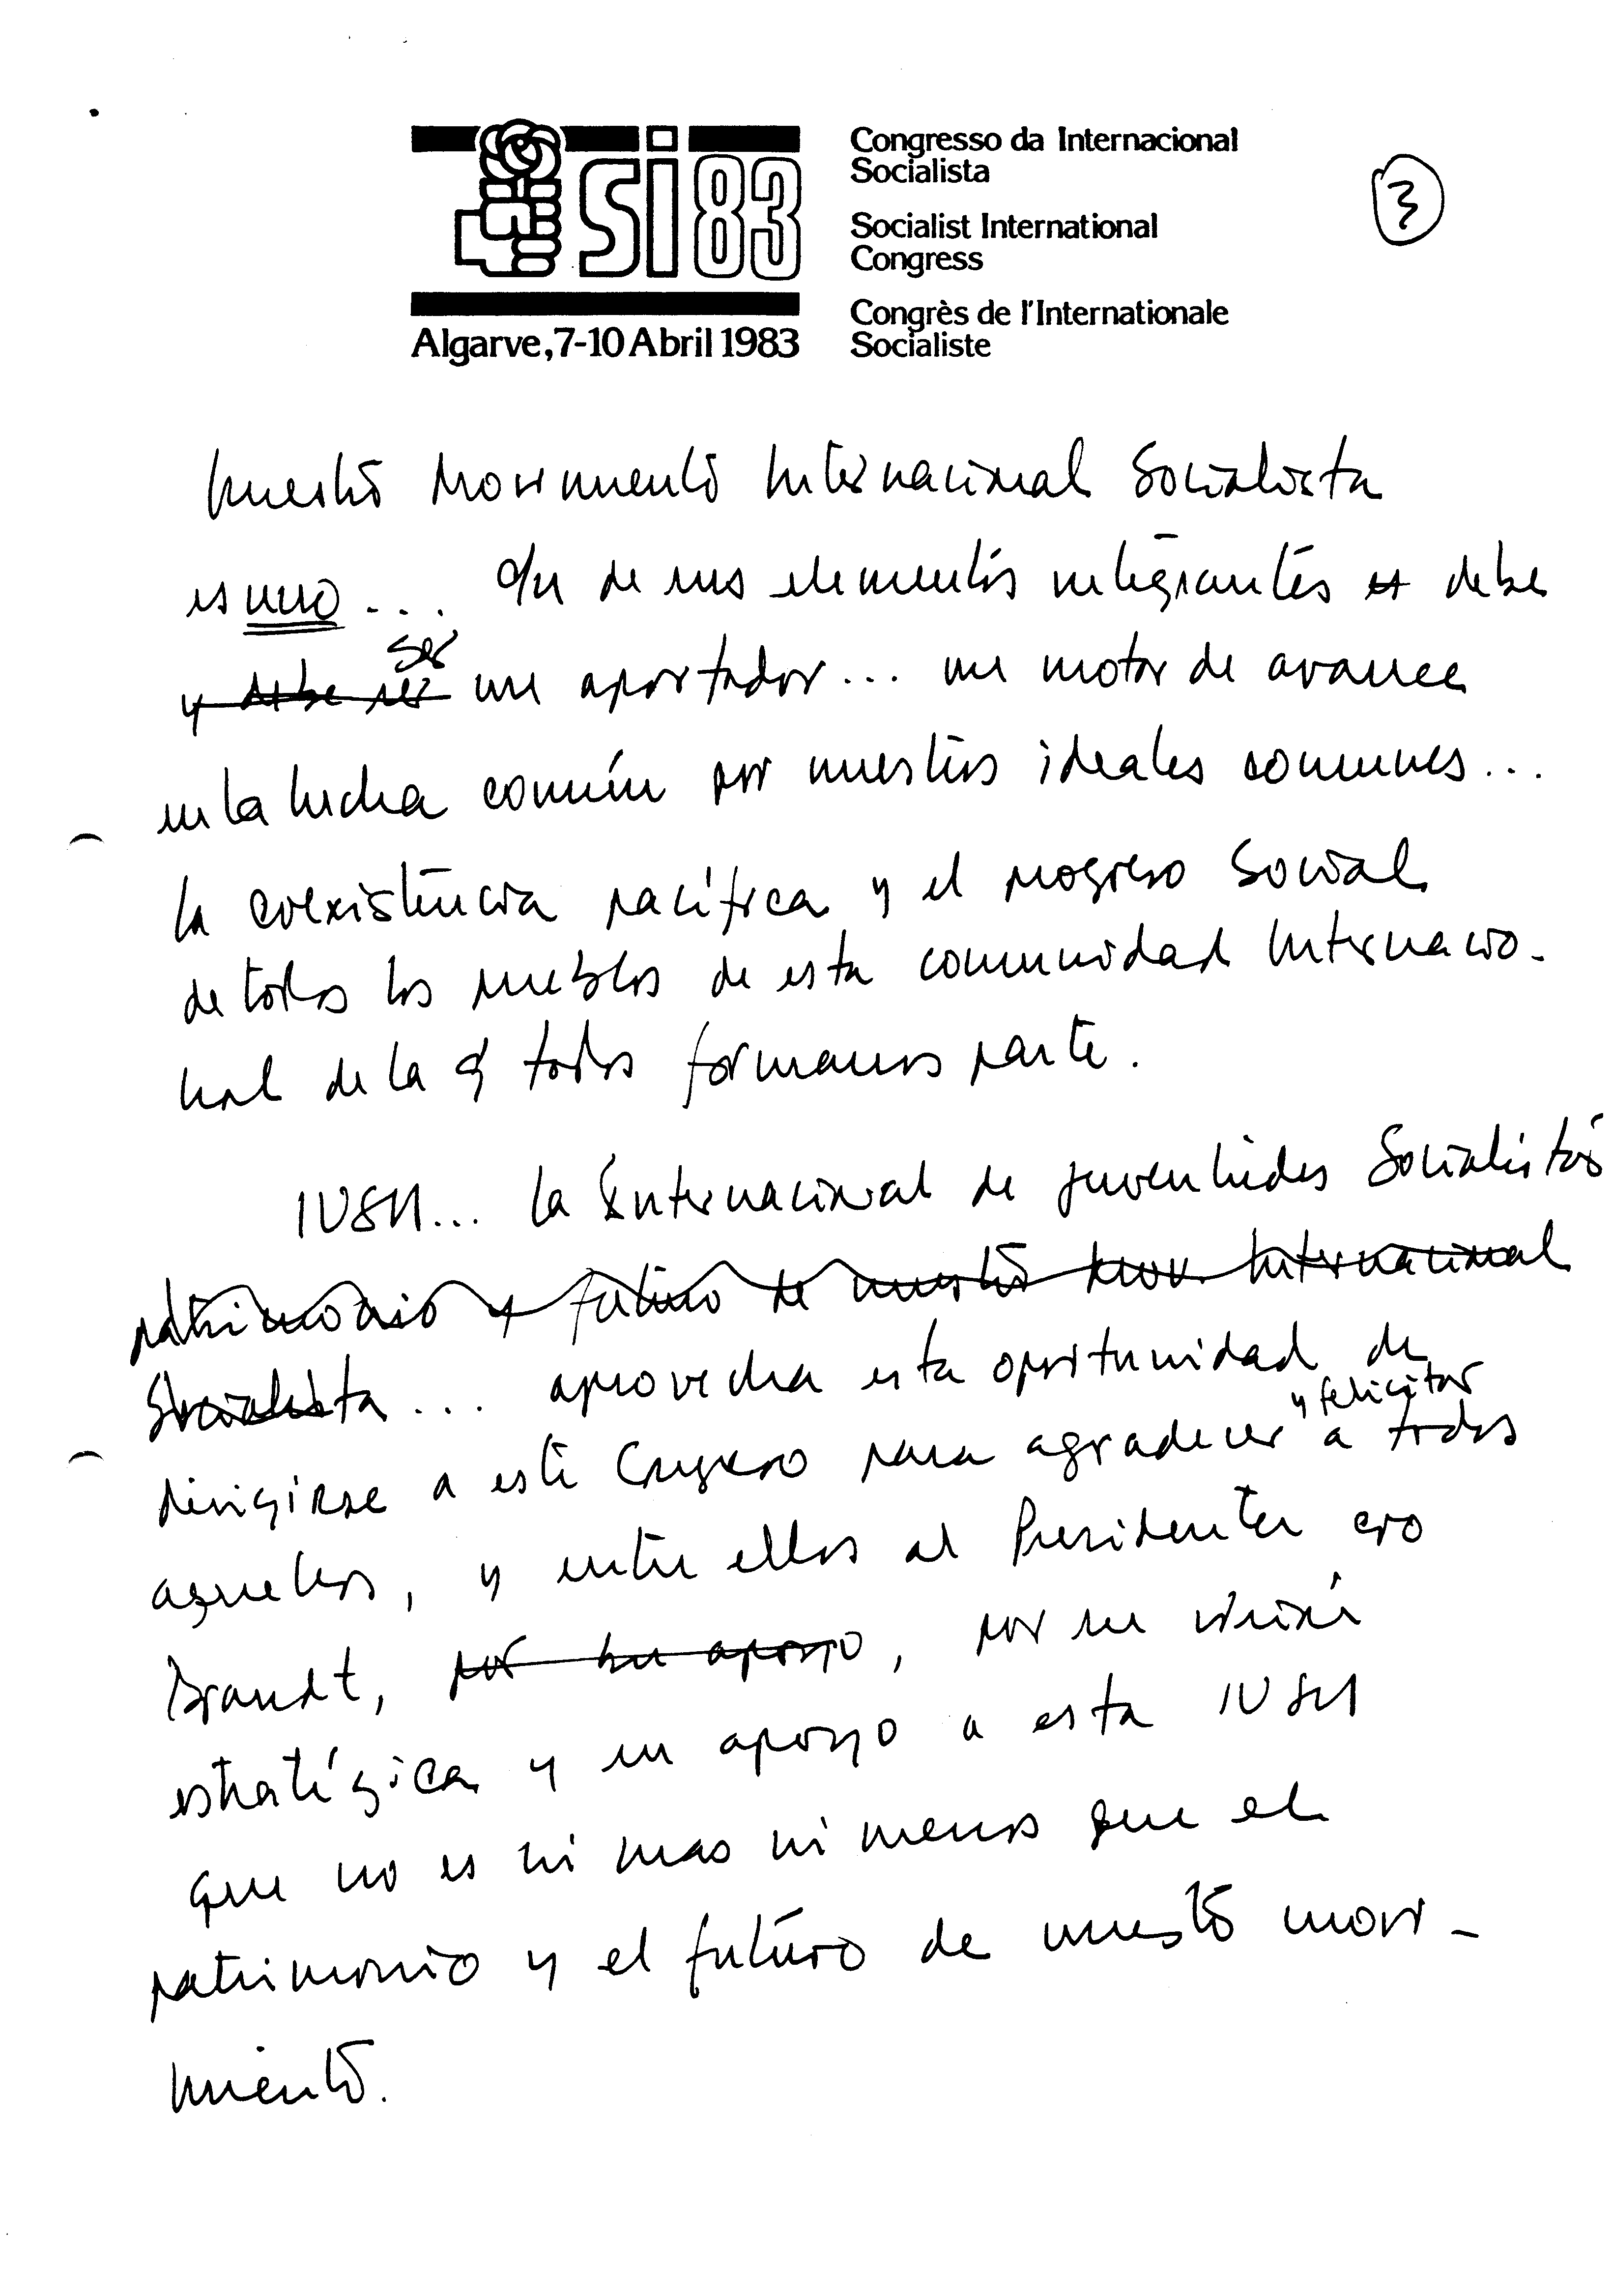 si 83
Algarve, 7-10 Abril 1983
Congresso da Internacional
Socialista
Socialist International
Congress
Congrès de l'Internationale
Socialiste
3
Nuestro Movimiento Internacional Socialista
es uno ... c/u de sus elementos integrantes es debe
ser
y debe ser un aportador ... un motor de avance
en la lucha común por nuestros ideales comunes ...
la coexistencia pacífica y el progreso Social
de todos los pueblos de esta comunidad Internacio-
nal de la q todos formamos parte.
IUSY... la Internacional de Juventudes Socialistas
patrimonio y futuro de nuestro Mov. Internacional
Socialista ... aprovecha esta oportunidad de
y felicitar
dirigirse a este Congreso para agradecer a todos
aquellos, y entre ellos al Presidente cro
Brandt, por su apoyo, por su visión
estratégica y su apoyo a esta IUSY
que no es ni mas ni menos que el
patrimonio y el futuro de nuestro movi-
miento.